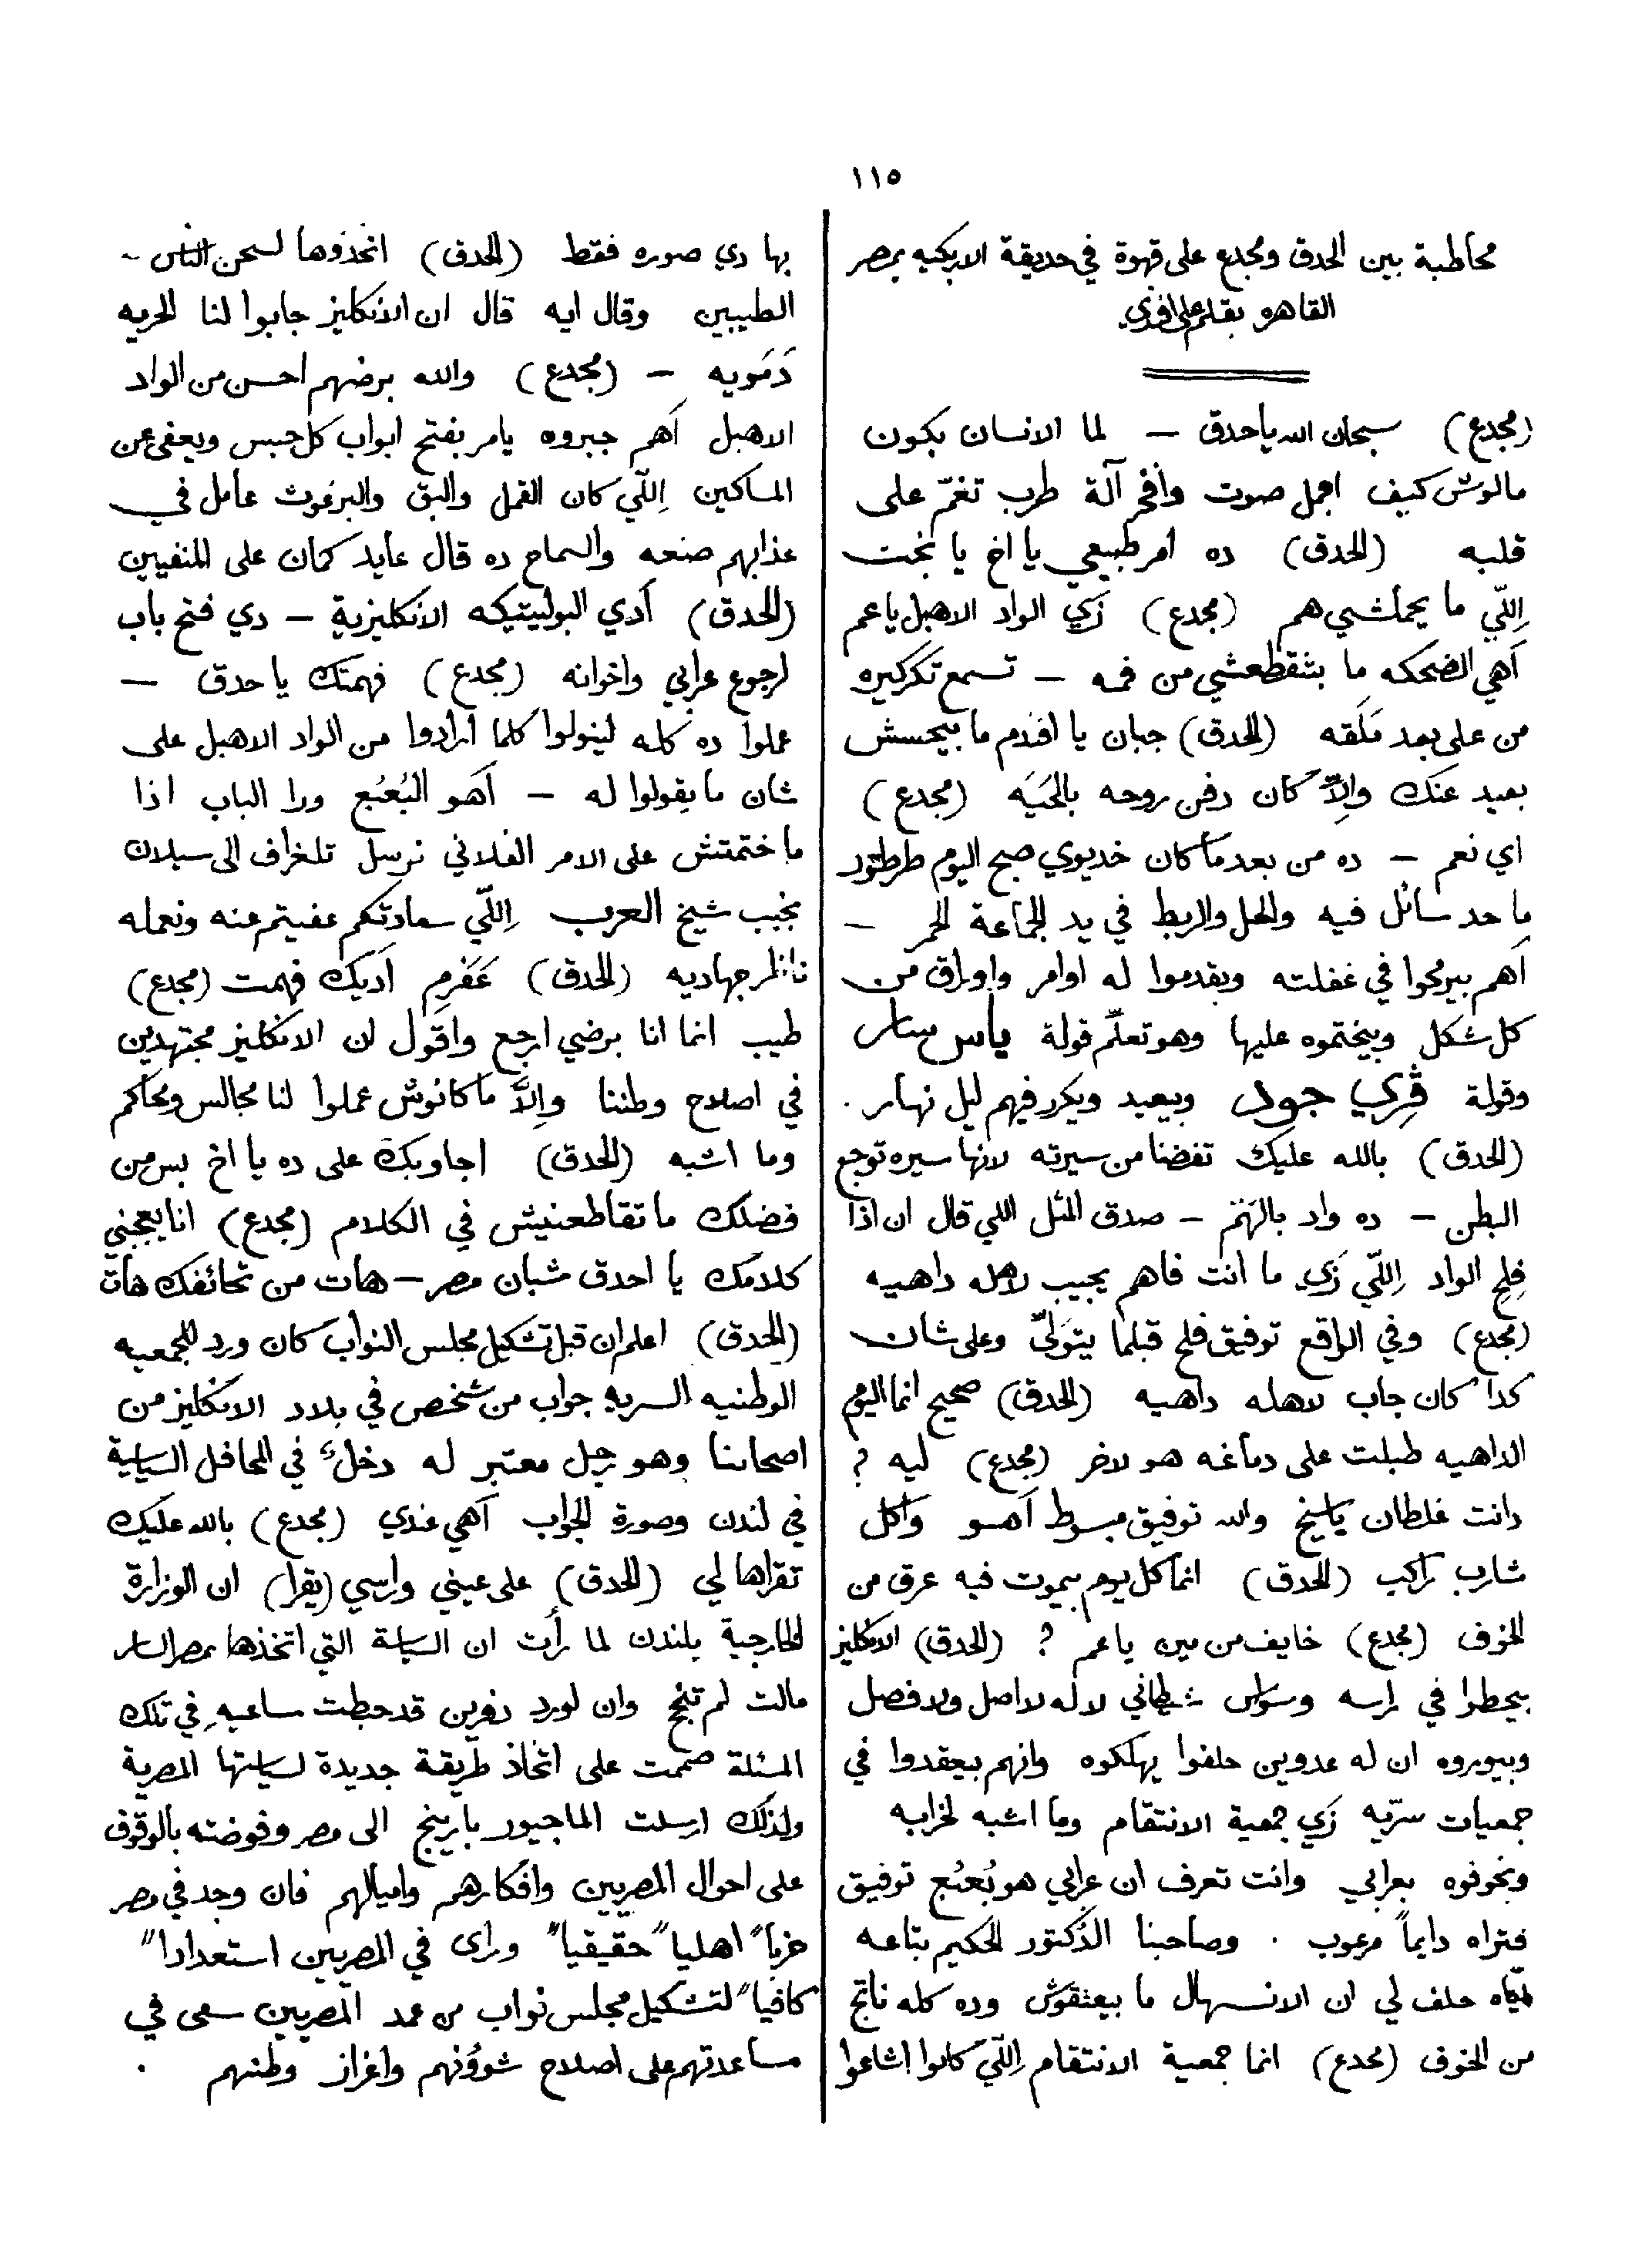 ١١٥
مخاطبة بين الحدق ومجدع على قهوة في حديقة الازبكيه بمصر
القاهره بقلم علي افندي
(مجدع) سبحان الله ياحدق — لما الانسان يكون
مالوش كيف اجمل صوت وافخر آلة طرب تغمّ على
قلبه (الحدق) ده امر طبيعي يا اخ يا بخت
اِللّي ما يحملشي هم (مجدع) زَي الواد الاهبل ياعم
اَهي الضحكه ما بتنقطعشي من فمه — تسمع تكركيره
من على بعد مَلَقه (الحدق) جبان يا افندم ما بيحسش
بعيد عنك واِلاّ كان دفن روحه بالحَيَه (مجدع)
اي نعم — ده من بعد ما كان خديوي صبح اليوم طرطور
ما حد سائل فيه والحل والربط في يد الجماعة الحمر —
اَهم بيرمحوا في غفلته ويقدموا له اوامر واوراق من
كل شكل ويختموه عليها وهو تعلّم قولة ياس سار
وقولة ڤري جود ويعيد ويكرر فيهم ليل نهار .
(الحدق) بالله عليك تفضنا من سيرته لانها سيره توجع
البطن — ده واد بالهَمّ — صدق المثل اللي قال ان اذا
فِلِح الواد اِللّي زَي ما انت فاهم يجيب لاهله داهيه
(مجدع) وفي الواقع توفيق فلح قبلما يتوَلىّ وعلى شان
كدا كان جاب لاهله داهيه (الحدق) صحيح انما اليوم
الداهيه طبلت على دماغه هو لاخر (مجدع) ليه ؟
دانت غلطان ياشيخ والله توفيق مبسوط اَهو واكل
شارب راكب (الحدق) انما كل يوم بيموت فيه عرق من
الخوف (مجدع) خايف من مين ياعم ؟ (الحدق) الانكليز
بيحطوا في راسه وسواس شيطاني لا له لا اصل ولا فصل
وبيوروه ان له عدوين حلفوا يهلكوه وانهم بيعقدوا في
جمعيات سرّيه زَي جمعية الانتقام وما اشبه لخرابه
وبخوفوه بعرابي وانت تعرف ان عرابي هو بُعبُع توفيق
فتراه دايماً مرعوب . وصاحبنا الدُكتور الحكيم بتاعه
حلف لي ان الانسهال ما بيعتقوش وده كله ناتج
من الخوف (مجدع) انما جمعية الانتقام اِللّي كانوا اشاعوا
بها دي صوره فقط (الحدق) اتخذوها لسجن الناس -
الطيبين وقال ايه قال ان الانكليز جابوا لنا الحريه
دَمَويه — (مجدع) والله برضهم احسن من الواد
الاهبل اَهم جبروه يامر بفتح ابواب كل حبس ويعفي عن
المساكين اِللّي كان القمل والبق والبرغوث عامل في
عذابهم صنعه والسماح ده قال عايد كمان على المنفيين
(الحدق) اَدي البوليتيكه الانكليزية — دي فتح باب
لرجوع عرابي واخوانه (مجدع) فهمتك يا حدق —
عملوا ده كله لينولوا كلما ارادوا من الواد الاهبل على
شان ما يقولوا له — اَهو البُعبُع ورا الباب اذا
ما ختمتش على الامر الفلاني نرسل تلغراف الى سيلان
نجيب شيخ العرب اِللّي سعادتكم عفيتم عنه ونعمله
ناظر جهاديه (الحدق) عَفَرِم اَديك فهمت (مجدع)
طيب انما انا برضي ارجع واقول ان الانكليز مجتهدين
في اصلاح وطننا واِلاَّ ما كانوش عملوا لنا مجالس ومحاكم
وما اشبه (الحدق) اجاوبك على ده يا اخ بس من
فضلك ما تقاطعنيش في الكلام (مجدع) انا يعجبني
كلامك يا احدق شبان مصر — هات من تحائفك هات
(الحدق) اعلم ان قبل تشكيل مجلس النواب كان ورد للجمعيه
الوطنيه السريه جواب من شخص في بلاد الانكليز من
اصحابنا وهو رجل معتبر له دخل في المحافل السياسية
في لندن وصورة الجواب اَهي عندي (مجدع) بالله عليك
تقراها لي (الحدق) على عيني وراسي (يقرا) ان الوزارة
الخارجية بلندن لما رأت ان السياسة التي اتخذها بمصر السار
مالت لم تنجح وان لورد دفرين قد حبطت مساعيهِ في تلك
المسئلة صممت على اتخاذ طريقة جديدة لسياستها المصرية
ولذلك ارسلت الماجيور بارينج الى مصر وفوضته بالوقوف
على احوال المصريين وافكارهم واميالهم فان وجد في مصر
حزباً اهلياً حقيقياً وراى في المصريين استعداداً
كافياً لتشكيل مجلس نواب من عمد المصريين سعى في
مساعدتهم على اصلاح شوؤنهم واعزاز وطنهم .